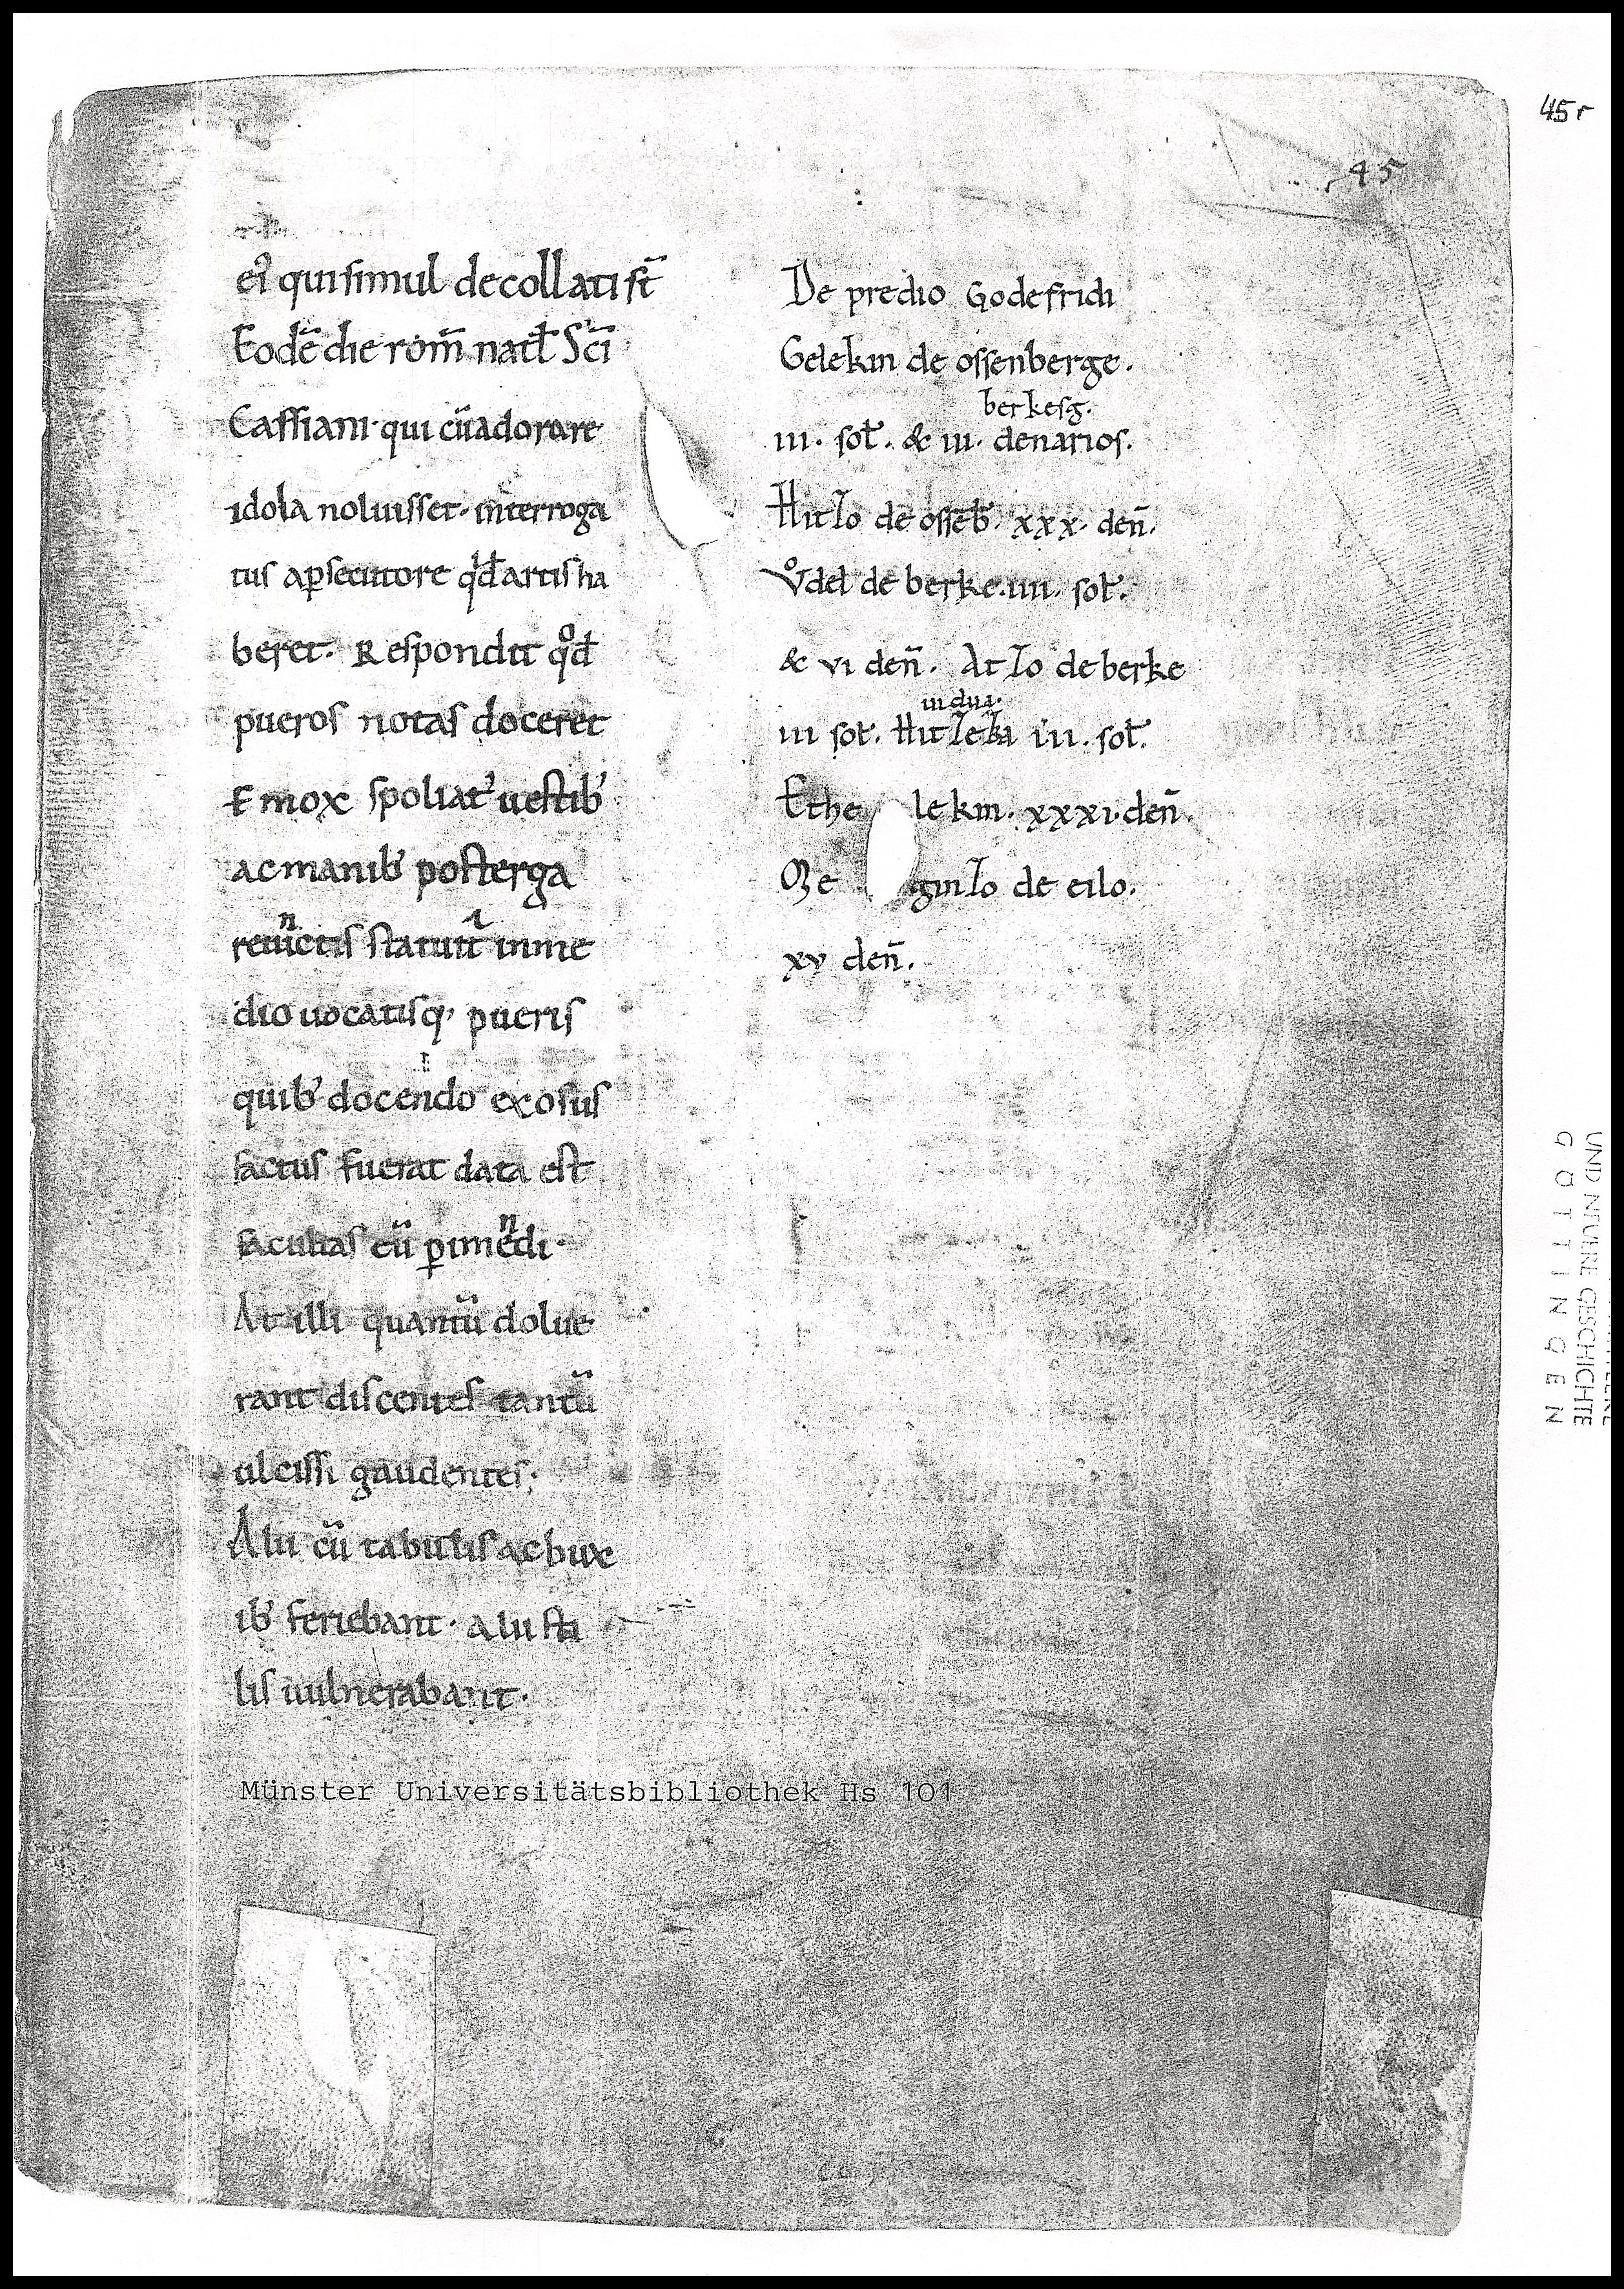 45r
45
eiꝰ qui simul decollati st̄
Eodē die rom̄ natl̄ Sc̄i
Cassiani· qui cū adorare
idola noluisset· interroga
tus a ꝑsecutore qͥd artis ha
beret· Respondit qͦd
pueros notas doceret
Et mox spoliatꝰ uestibꝰ
ac manibꝰ post terga
reuinctis statuitͥ in me
dio uocatisqꝫ pueris
quibꝰ docendo exosus
factus fuerat data est
facultas eū ꝑimendi·
At illi quantū dolue
rant discentes tantū
ulcissi gaudentes·
Alii cū tabulis ac bux
ibꝰ feriebant· alii sti
lis uulnerabant·
De predio Godefridi
Gelekin de ossenberge.
berkesg.
iii. sol̄. & iii. denarios.
Hitzo de ossēb. xxx. den̄.
Vͦdel de berke. iiii. sol̄.
& vi den̄. Atzo de berke
uidua.
iii sol̄. Hitzeka iii. sol̄.
Ethe lekin. xxxi. den̄.
Me ginzo de eilo.
xv den̄.
Münster Universitätsbibliothek Hs 101
UND NEUERE GESCHICHTE
GÖTTINGEN